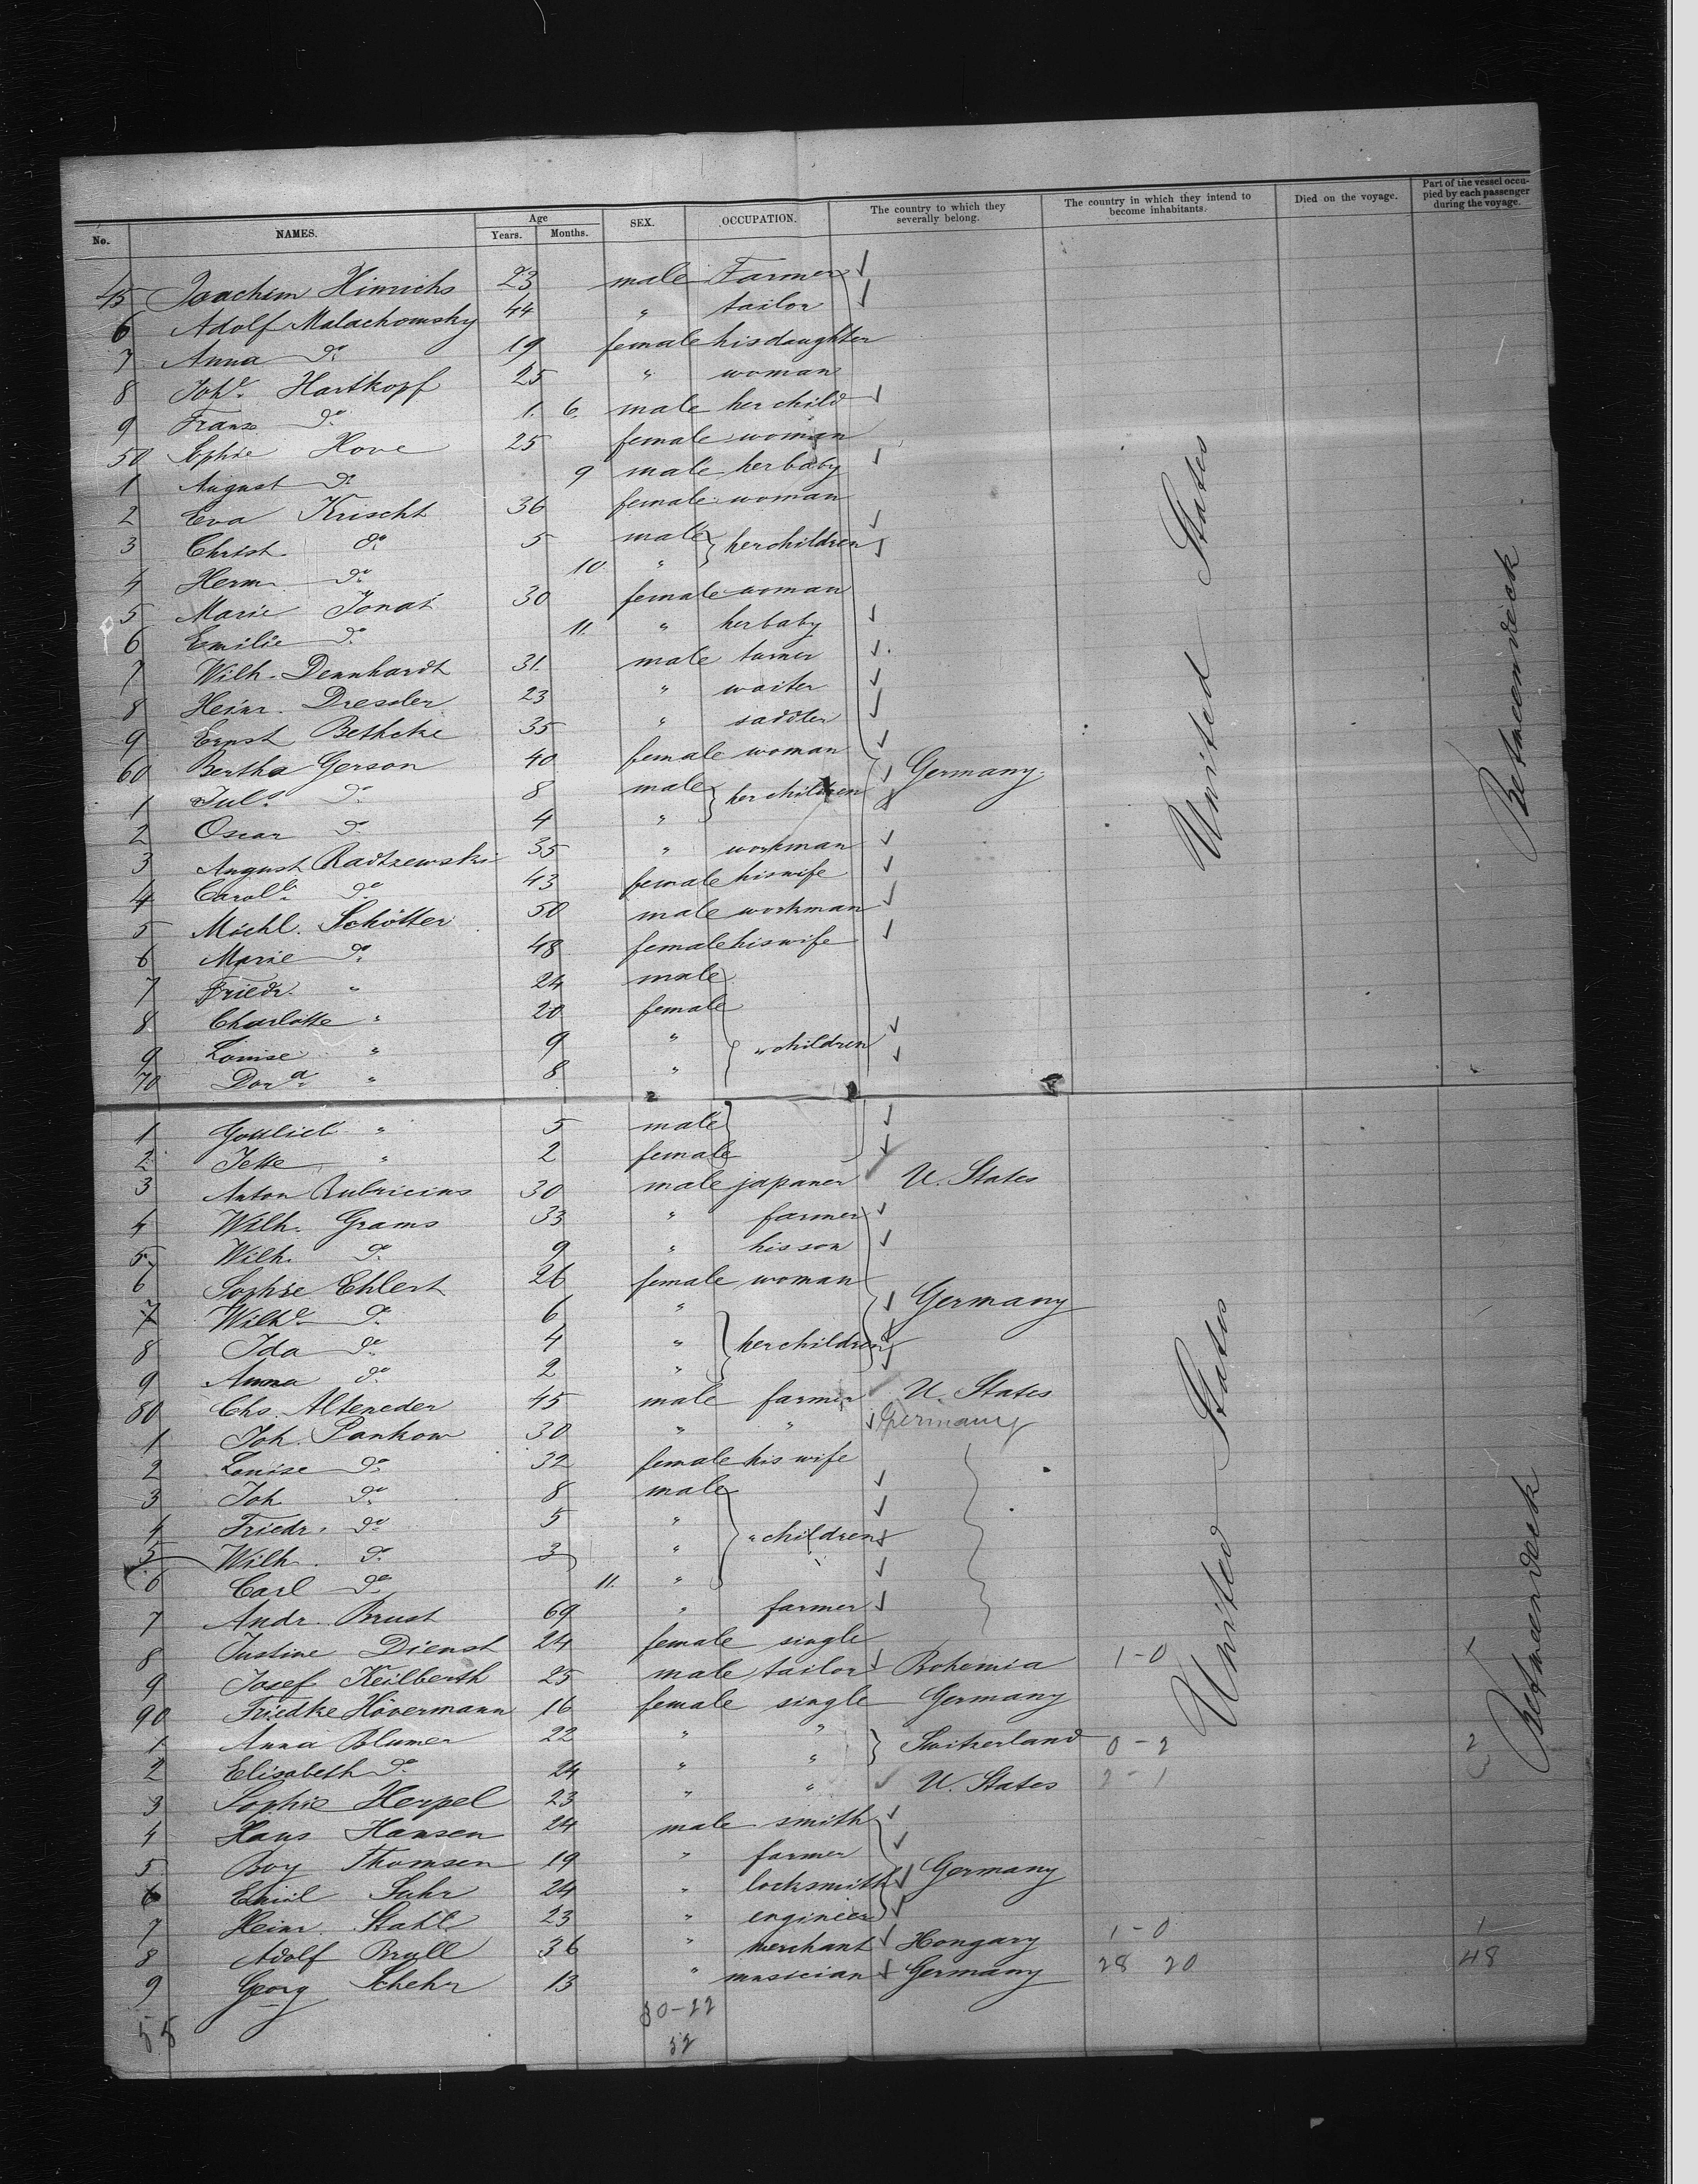 No. NAMES. Age Years. Months. SEX. OCCUPATION. The country to which they severally belong. The country in which they intend to become inhabitants. Died on the voyage. Part of the vessel occupied by each passenger during the voyage.
45 Joachim Hinrichs 23 male Farmer
6 Adolf Malachowsky 44 " tailor
7 Anna do. 19 female his daughter
8 Johe. Hartkopf 25 " woman
9 Franz do. 1. 6. male her child
50 Sophie Hove 25 female woman
1 August do. 9 male her baby
2 Eva Krischt 36 female woman
3 Christ. do. 5 male her children
4 Herm. do. 10. "
5 Marie Jonat 30 female woman
6 Emilie do. 11. " her baby
7 Wilh. Dennhardt 31. male turner
8 Heinr. Dressler 23 " waiter
9 Ernst Bethcke 35 " saddler
60 Bertha Gerson 40 female woman Germany. United States Betweendeck
1 Juls. do. 8 male her children
2 Oscar do. 4 "
3 August Radtzewski 35 " workman
4 Carole. do. 43 female his wife
5 Michl. Schötter 50 male workman
6 Marie do. 48 female his wife
7 Friedr. " 24 male
8 Charlotte " 20 female
9 Louise " 9 " " children
70 Dora. " 8 "
1 Gottlieb " 5 male
2 Jette " 2 female
3 Anton Rubricius 30 male japaner U. States
4 Wilh. Grams 33 " farmer
5 Wilh. do. 9 " his son
6 Sophie Ehlert 26 female woman
7 Wilhe. do. 6 " Germany
8 Ida do. 4 " her children
9 Anna do. 2 "
80 Chs. Alteneder 45 male farmer U. States
1 Joh. Pankow 30 " " Germany
2 Louise do. 32 female his wife
3 Joh. do. 8 male
4 Friedr. do. 5 "
5 Wilh. do. 3 " " children
6 Carl do. 11. "
7 Andr. Brust 69 " farmer United States Betweendeck
8 Justine Dienst 24 female single
9 Josef Keilberth 25 male tailor Bohemia 1-0 1
90 Friedke Hövermann 16 female single Germany
1 Anna Blumer 22 " " Switzerland 0-2 2
2 Elisabeth do. 24 " "
3 Sophie Herpel 23 " " U. States 2-1 3
4 Hans Hansen 24 male smith
5 Boy Thomsen 19 " farmer Germany
6 Emil Suhr 24 " locksmith
7 Heinr. Stahl 23 " engineer
8 Adolf Brull 36 " merchant Hongary 1-0 1
9 Georg Schehr 13 " musician Germany 28 20 48
55 30-22
52